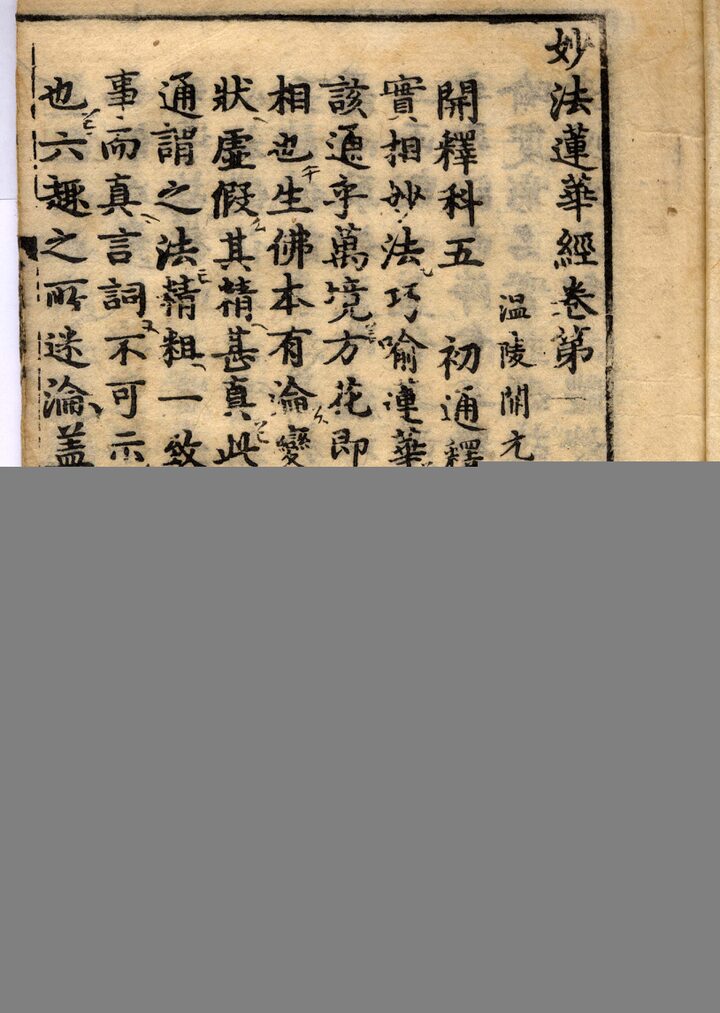 妙法蓮華經卷第一
温陵開元
開釋科五 初通釋
實相妙法巧喻蓮華
該通乎萬境方花即
相也生佛本有淪變
狀虛假其精甚真此
通謂之法精粗一致
事而真言詞不可示
也六趣之所迷淪盖